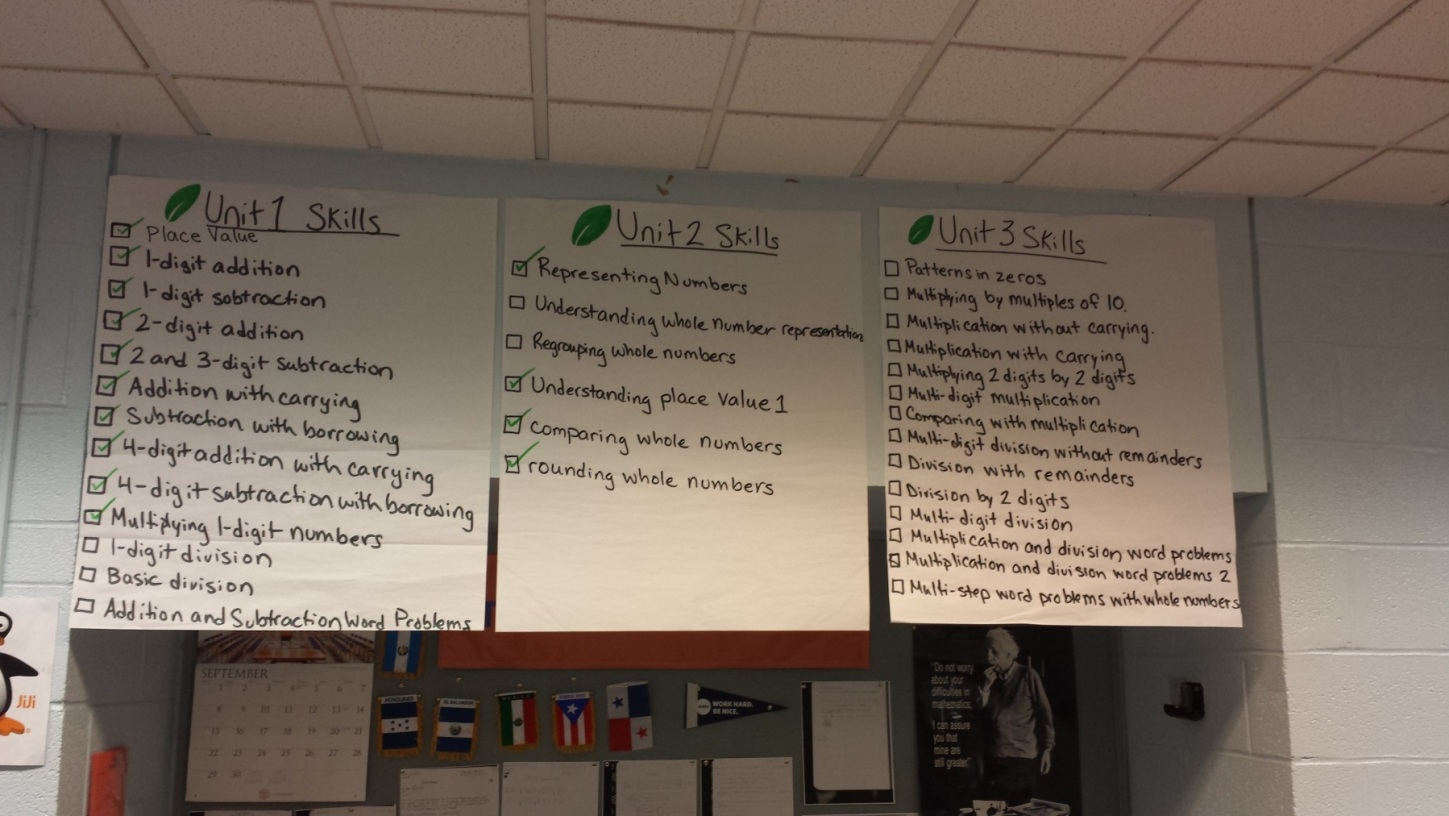 Unit 1 Skills
Place Value
1-digit addition
1-digit sobtraction
2-digit addition
2 and 3-digit subtraction
Addition with carrying
Subtraction with borrowing
4-digit addition with carrying
4-digit subtraction with borrowing
Multiplying 1-digit numbers
1-digit division
Basic division
Addition and Subtraction Word Problems
Unit 2 Skills
Representing Numbers
Understanding whole number representation
Regrouping whole numbers
Understanding place value 1
comparing whole numbers
rounding whole numbers
Unit 3 Skills
Patterns in zeros
Multiplying by multiples of 10.
Multiplication without carrying.
Multiplication with carrying
Multiplying 2 digits by 2 digits
Multi-digit multiplication
Comparing with multiplication
Multi-digit division without remainders
Division with remainders
Division by 2 digits
Multi-digit division
Multiplication and division word problems
Multiplication and division word problems 2
Multi-step word problems with whole numbers
JiJi
SEPTEMBER
1 2 3 4 5 6 7
8 9 10 11 12 13 14
15 16 17 18 19 20 21
22 23 24 25 26 27 28
29 30
HONDURAS
EL SALVADOR
MEXICO
PUERTO RICO
WORK HARD.
BE NICE.
"Do not worry
about your
difficulties in
mathematics;
I can assure
you that
mine are
still greater."